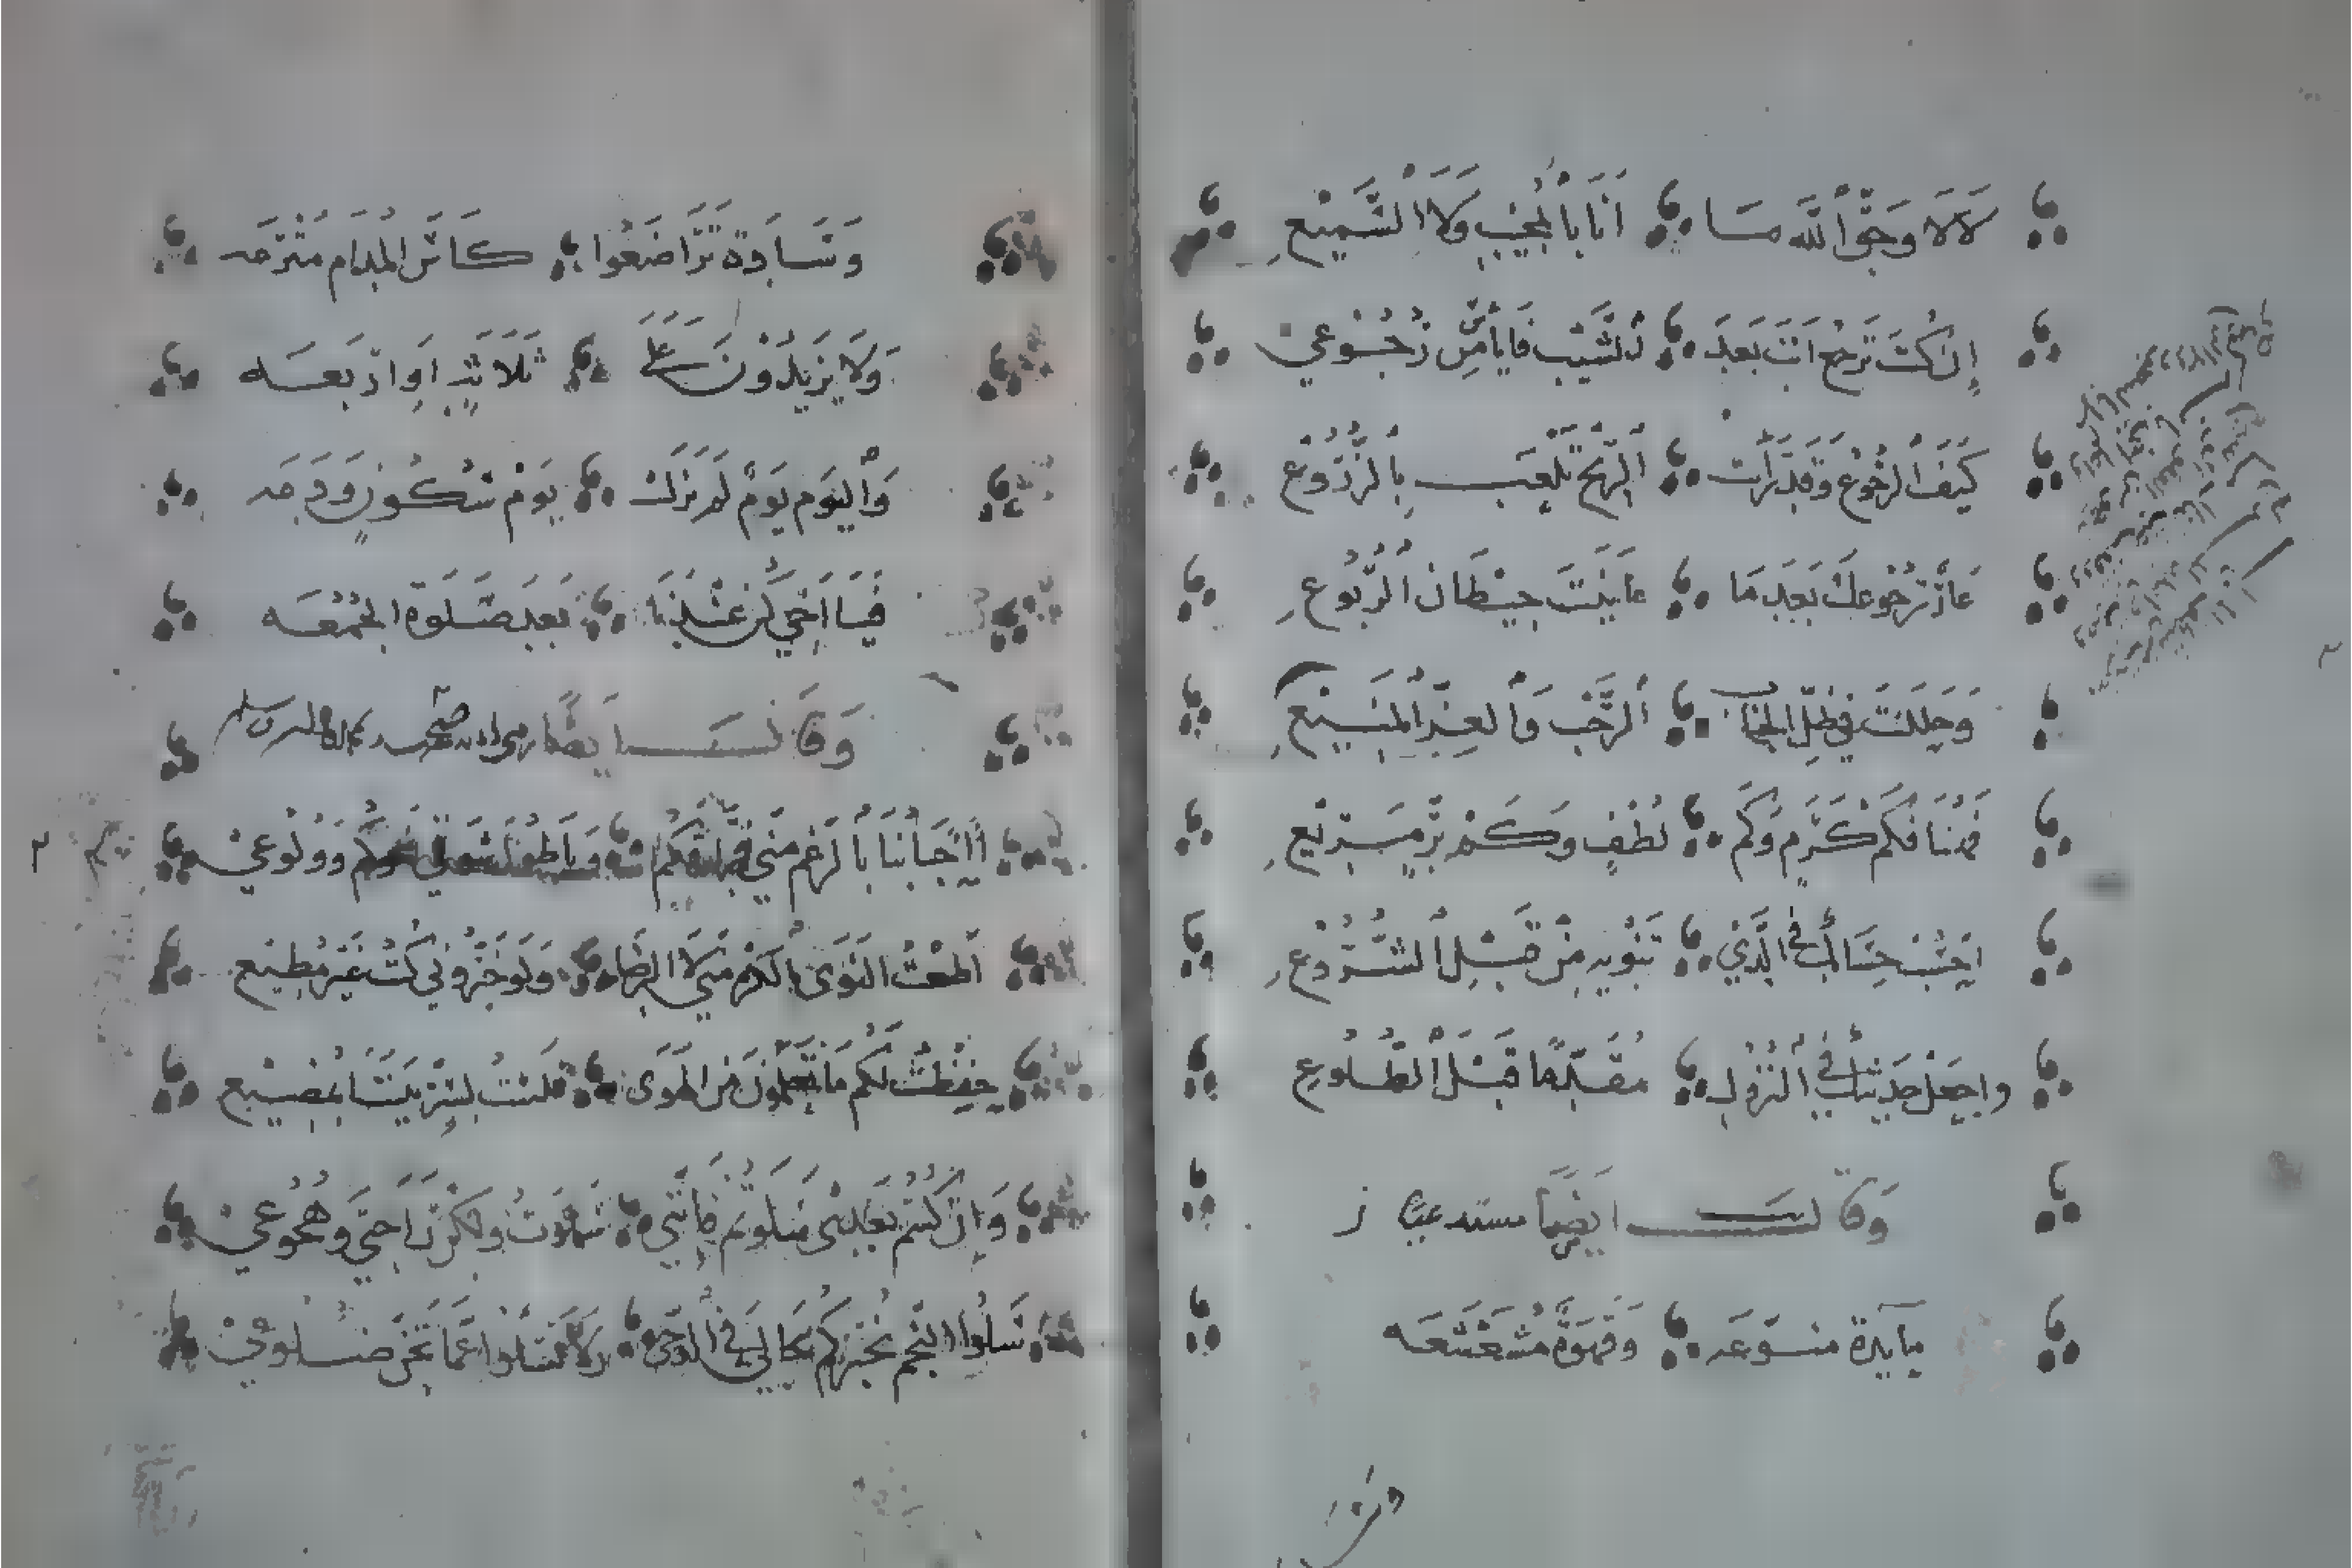 لَا لَا وَحَقِّ اللَّهِ مَا أَنَا بِالْمُجِيْبِ وَلَا السَّمِيْعِ
إِن كُنْتَ تَرْجِعُ أَنْتَ بَعْدَ الشَّيْبِ فَايْأَسْ مِن رُجُوْعِيْ
كَيْفَ الرُّجُوْعُ وَقَد رَأَيْتَ الرِّيْحَ تَلْعَبُ بِالزُّرُوْعِ
عَارٌ رُجُوْعُكَ بَعْدَ مَا عَايَنْتَ حِيْطَانَ الرُّبُوْعِ
وَحَلَلْتَ فِي ظِلِّ الْجَنَابِ الرَّحْبِ وَالْعِزِّ الْمَنِيْعِ
فَكَمْ كَرَمٍ وَكَمْ لُطْفٍ وَكَمْ بِرٍّ سَرِيْعِ
احْسُبْ حِسَابَكَ فِي الَّذِيْ تَنْوِيْهِ مِنْ قَبْلِ الشُّرُوْعِ
وَاجْعَلْ حَدِيْثَكَ فِي النُّزُوْلِ مُقَدَّمًا قَبْلَ الطُّلُوْعِ
وَقَالَ أَيْضًا
مَائِدَةٌ مُنَوَّعَه وَقَهْوَةٌ مُشَعْشَعَه
وَسَادَةٌ تَرَاضَعُوا كَاسَ الْمُدَامِ مُتْرَعَه
وَلَا يَزِيْدُوْنَ عَلَى ثَلَاثَةٍ أَوْ أَرْبَعَه
وَالْيَوْمَ يَوْمٌ لَمْ يَزَلْ يَوْمَ سُكُونٍ وَدَعَه
فَيَا أَخِي كُنْ عِنْدَنَا بَعْدَ صَلَوةِ الْجُمُعَه
وَقَالَ أَيْضًا
أَأَحْبَابَنَا بِالرَّغْمِ مِنِّي فِرَاقُكُمْ وَيَا طُوْلَ شَوْقِي نَحْوَكُمْ وَوُلُوْعِيْ
أَطَعْتُ النَّوَى بِالْكُرْهِ مِنِّي لَا الرِّضَا وَلَوْ خَيَّرُوْنِي كُنْتُ غَيْرَ مُطِيْعِ
حَفِظْتُ لَكُمْ مَا تَعْلَمُوْنَ مِنَ الْهَوَى فَلَسْتُ لِسِرٍّ بَيْنَنَا بِمُضِيْعِ
وَإِنْ كُنْتُمْ بَعْدِيْ سَلَوْتُمْ فَإِنَّنِي سَلَوْتُ وَلَكِنْ رَاحَتِي وَهُجُوْعِيْ
سَلُوا النَّجْمَ يُخْبِرْكُمْ بِحَالِي فِي الدُّجَى وَلَا تَسْأَلُوا عَمَّا تُجِنُّ ضُلُوْعِيْ